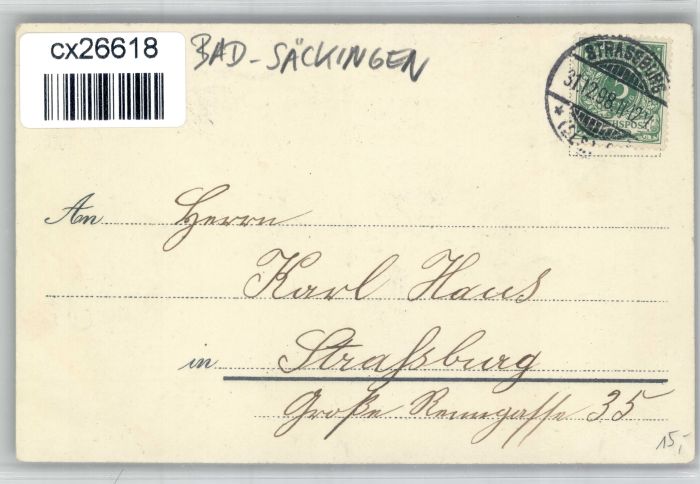 cx26618
BAD-SÄCKINGEN
STRASSBURG
31.12.98
An Herrn
Karl Haus
in Straßburg
Große Renngasse 35
15,-